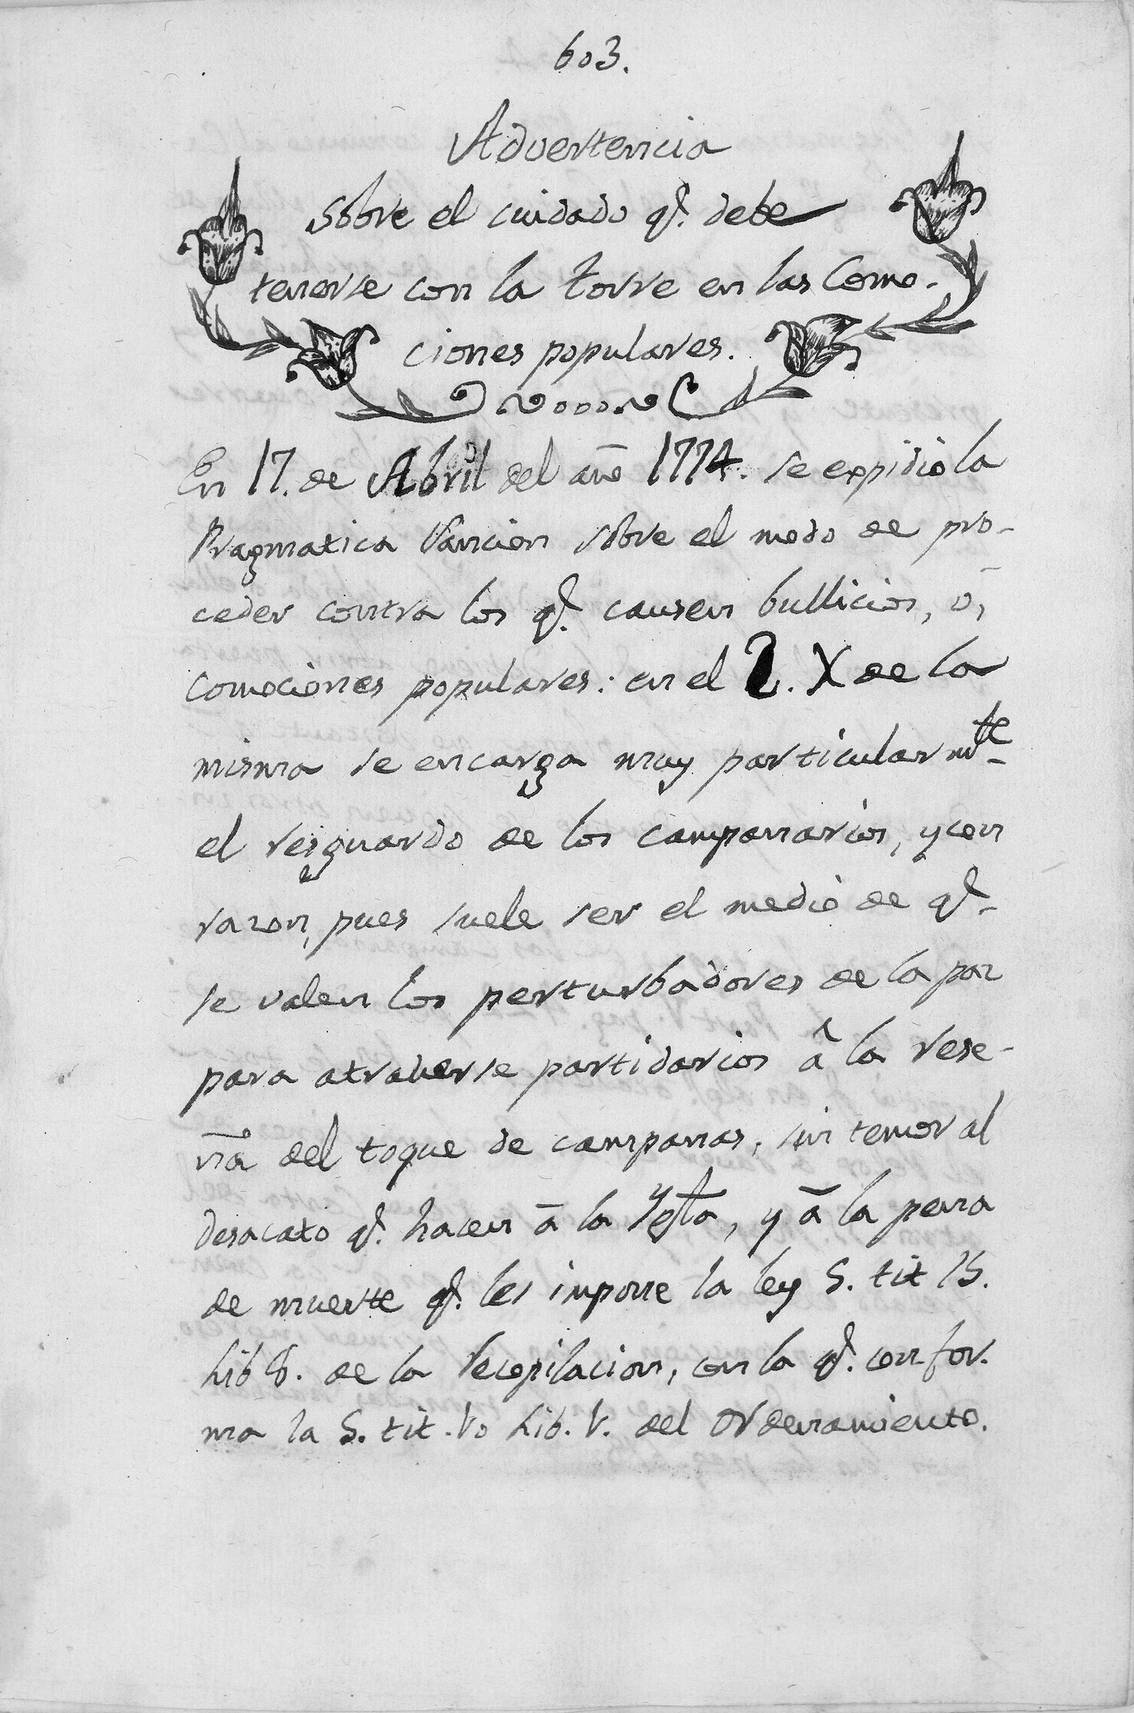 603.
Advertencia
sobre el cuidado q.e debe
tenerse con la torre en las Como-
ciones populares.
En 17. de Abril del año 1774. se expidio la
Pragmatica Sancion sobre el modo de pro-
ceder contra los q.e causen bullicios, ó,
comociones populares: en el §. X de la
misma se encarga muy particularm.te
el resguardo de los campanarios, y con
razon, pues suele ser el medio de q.e
se valen los perturbadores de la paz
para atraherse partidarios â la rese-
ña del toque de campanas, sin temor al
desacato q.e hacen â la Ygl.a, y â la pena
de muerte q.e les impone la ley 5. tit 15.
Lib 8. de la Recopilacion, con la q.e confor-
ma la 5. tit. Lib. del Ordenamiento.